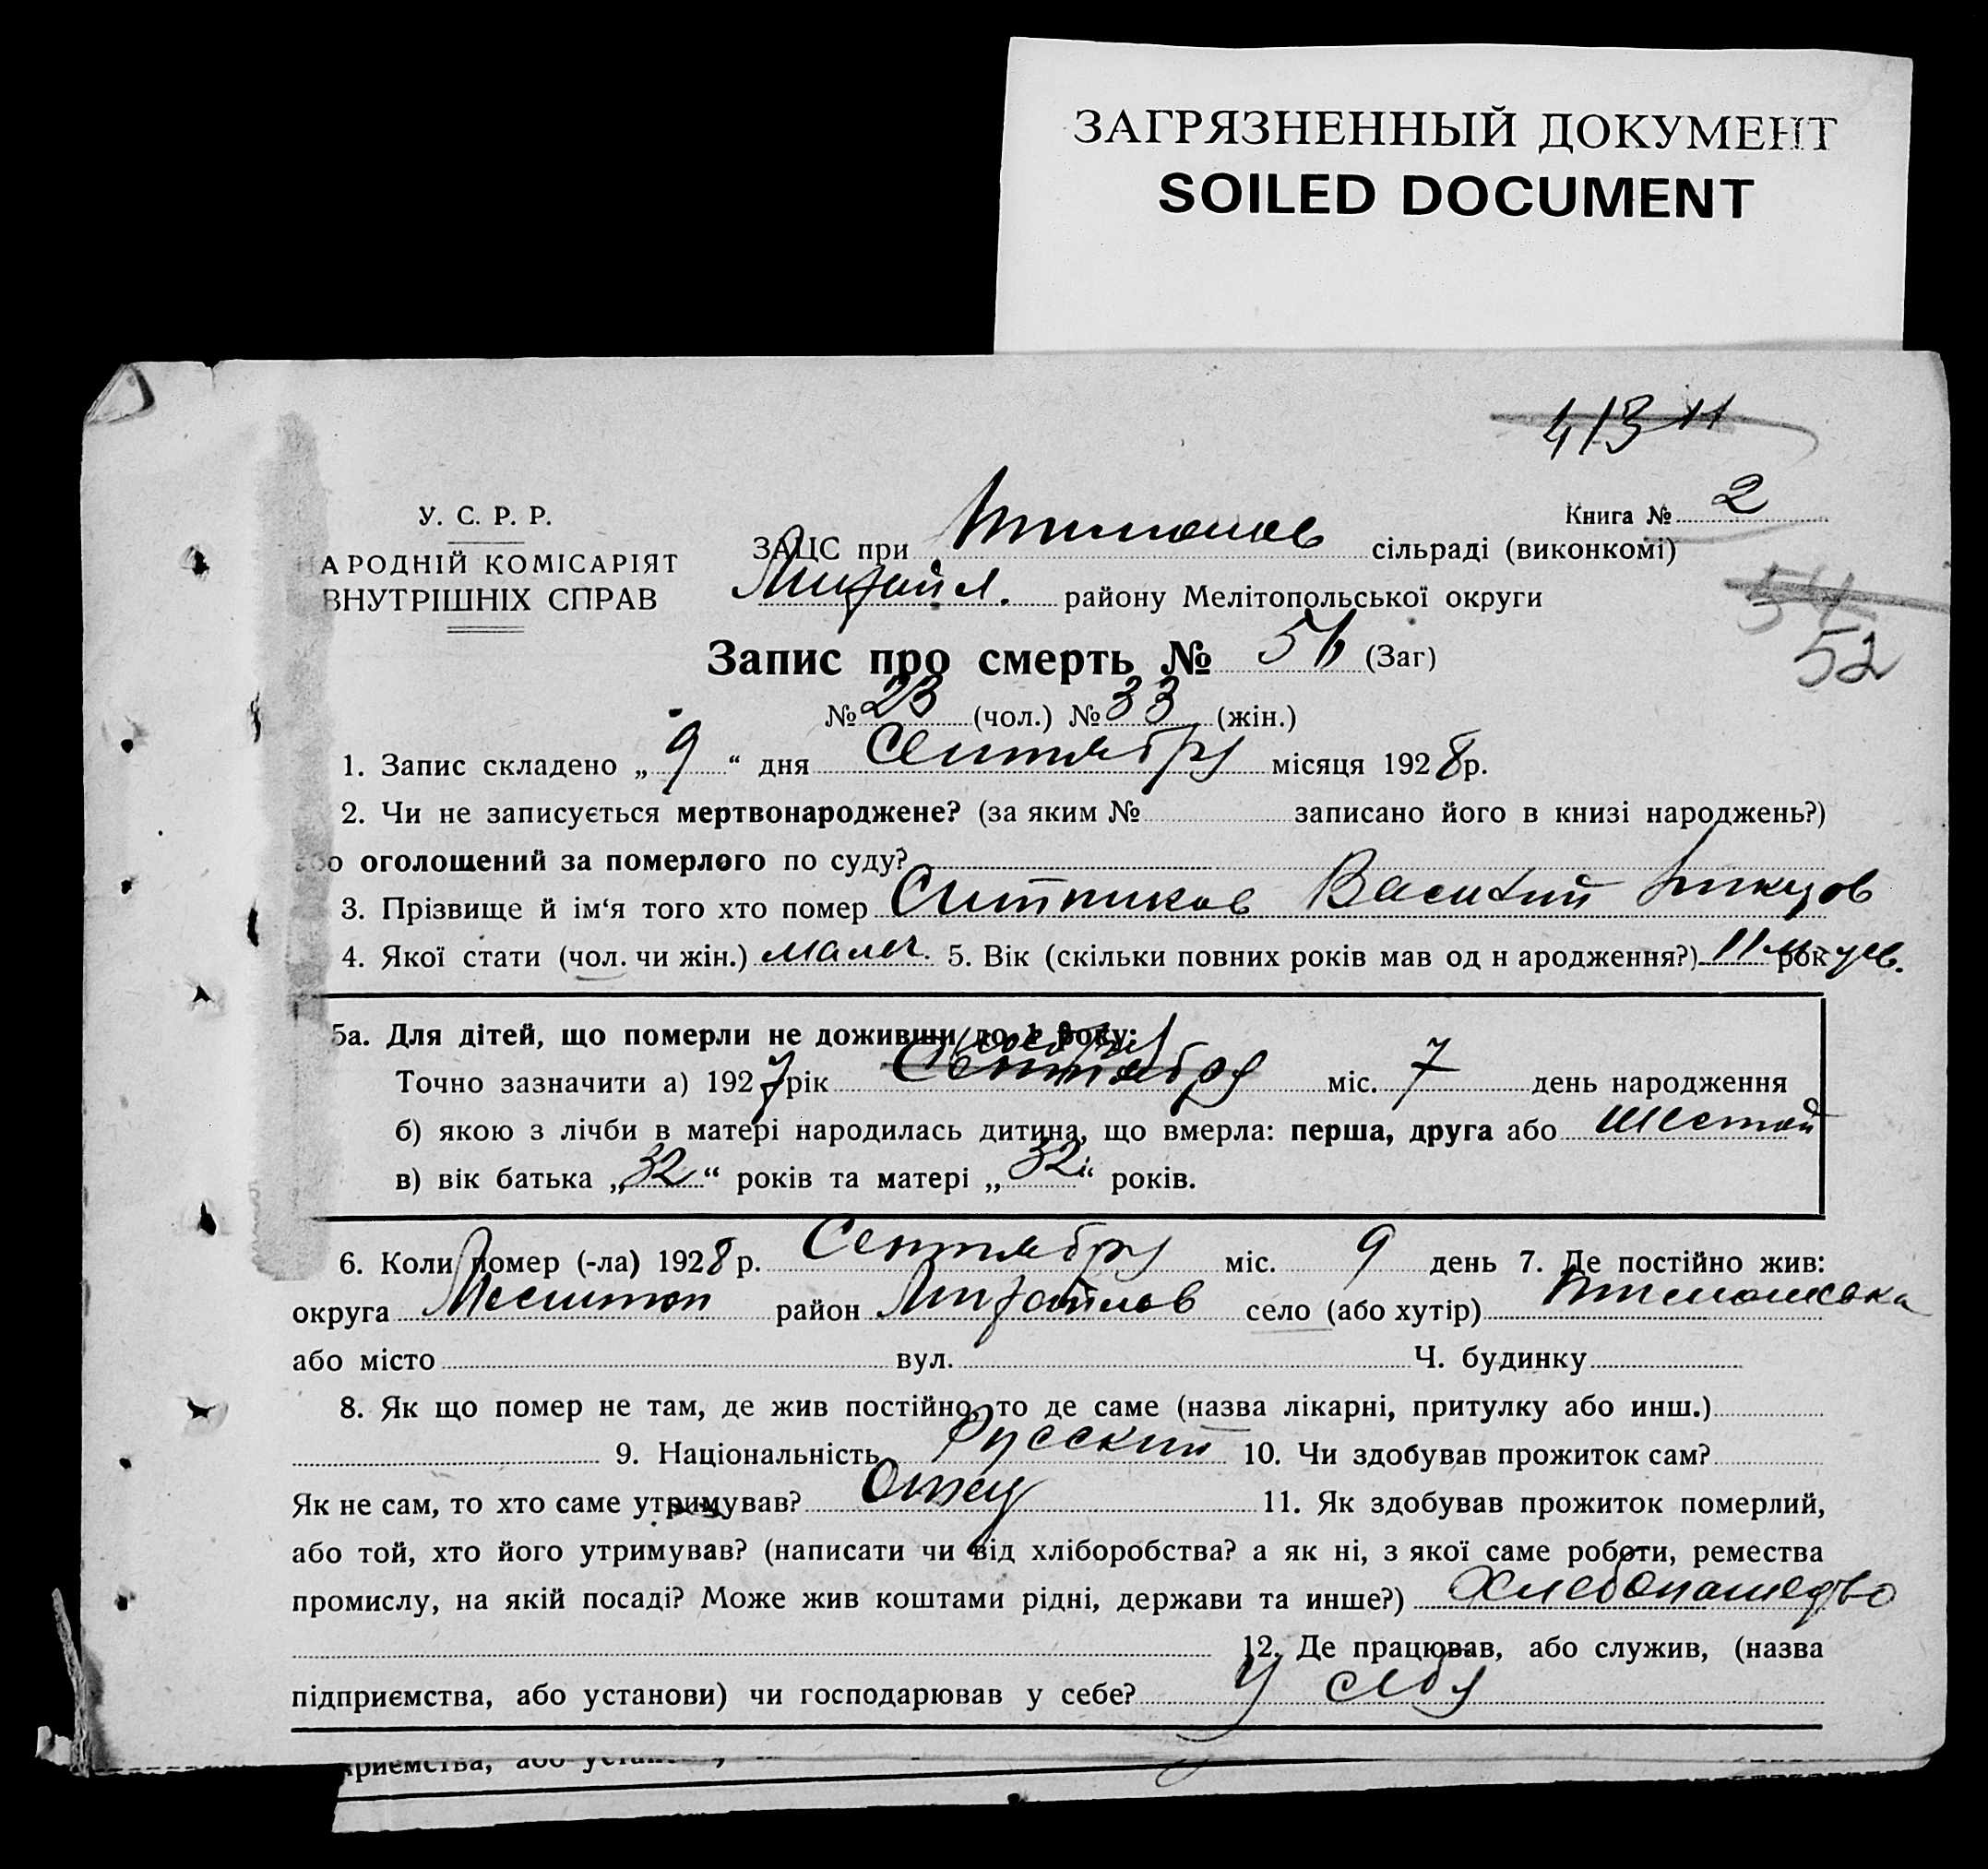 ЗАГРЯЗНЕННЫЙ ДОКУМЕНТ
SOILED DOCUMENT
413
У. С. Р. Р.
Книга № 2
АРОДНІЙ КОМІСАРІЯТ
ЗАЦС при сільраді (виконкомі)
ВНУТРІШНІХ СПРАВ
Михайл. району Мелітопольської округи
54
52
Запис про смерть № 56 (Заг)
№ 23 (чол.) № 33 (жін.)
1. Запис складено „ 9 “ дня Сентября місяця 1928 р.
2. Чи не записується мертвонароджене? (за яким № записано його в книзі народжень?)
бо оголошений за померлого по суду?
3. Прізвище й ім‘я того хто помер Ситников Василий
4. Якої стати (чол. чи жін.) мальч. 5. Вік (скільки повних років мав од н ародження?) 11 рок
5а. Для дітей, що померли не доживши до 1 року:
Точно зазначити а) 1927 рік Сентября міс. 7 день народження
б) якою з лічби в матері народилась дитина, що вмерла: перша, друга або шестой
в) вік батька „ 32 “ років та матері „ 32 “ років.
6. Коли помер (-ла) 1928 р. Сентября міс. 9 день 7. Де постійно жив:
округа Мелитоп район Михайлов село (або хутір) Тимошовка
або місто вул. Ч. будинку
8. Як що помер не там, де жив постійно, то де саме (назва лікарні, притулку або инш.)
9. Національність Русский 10. Чи здобував прожиток сам?
Як не сам, то хто саме утримував? Отец 11. Як здобував прожиток померлий,
або той, хто його утримував? (написати чи від хліборобства? а як ні, з якої саме роботи, ремества
промислу, на якій посаді? Може жив коштами рідні, держави та инше?) Хлебопашество
12. Де працював, або служив, (назва
підприємства, або установи) чи господарював у себе? У себя
приємства, або